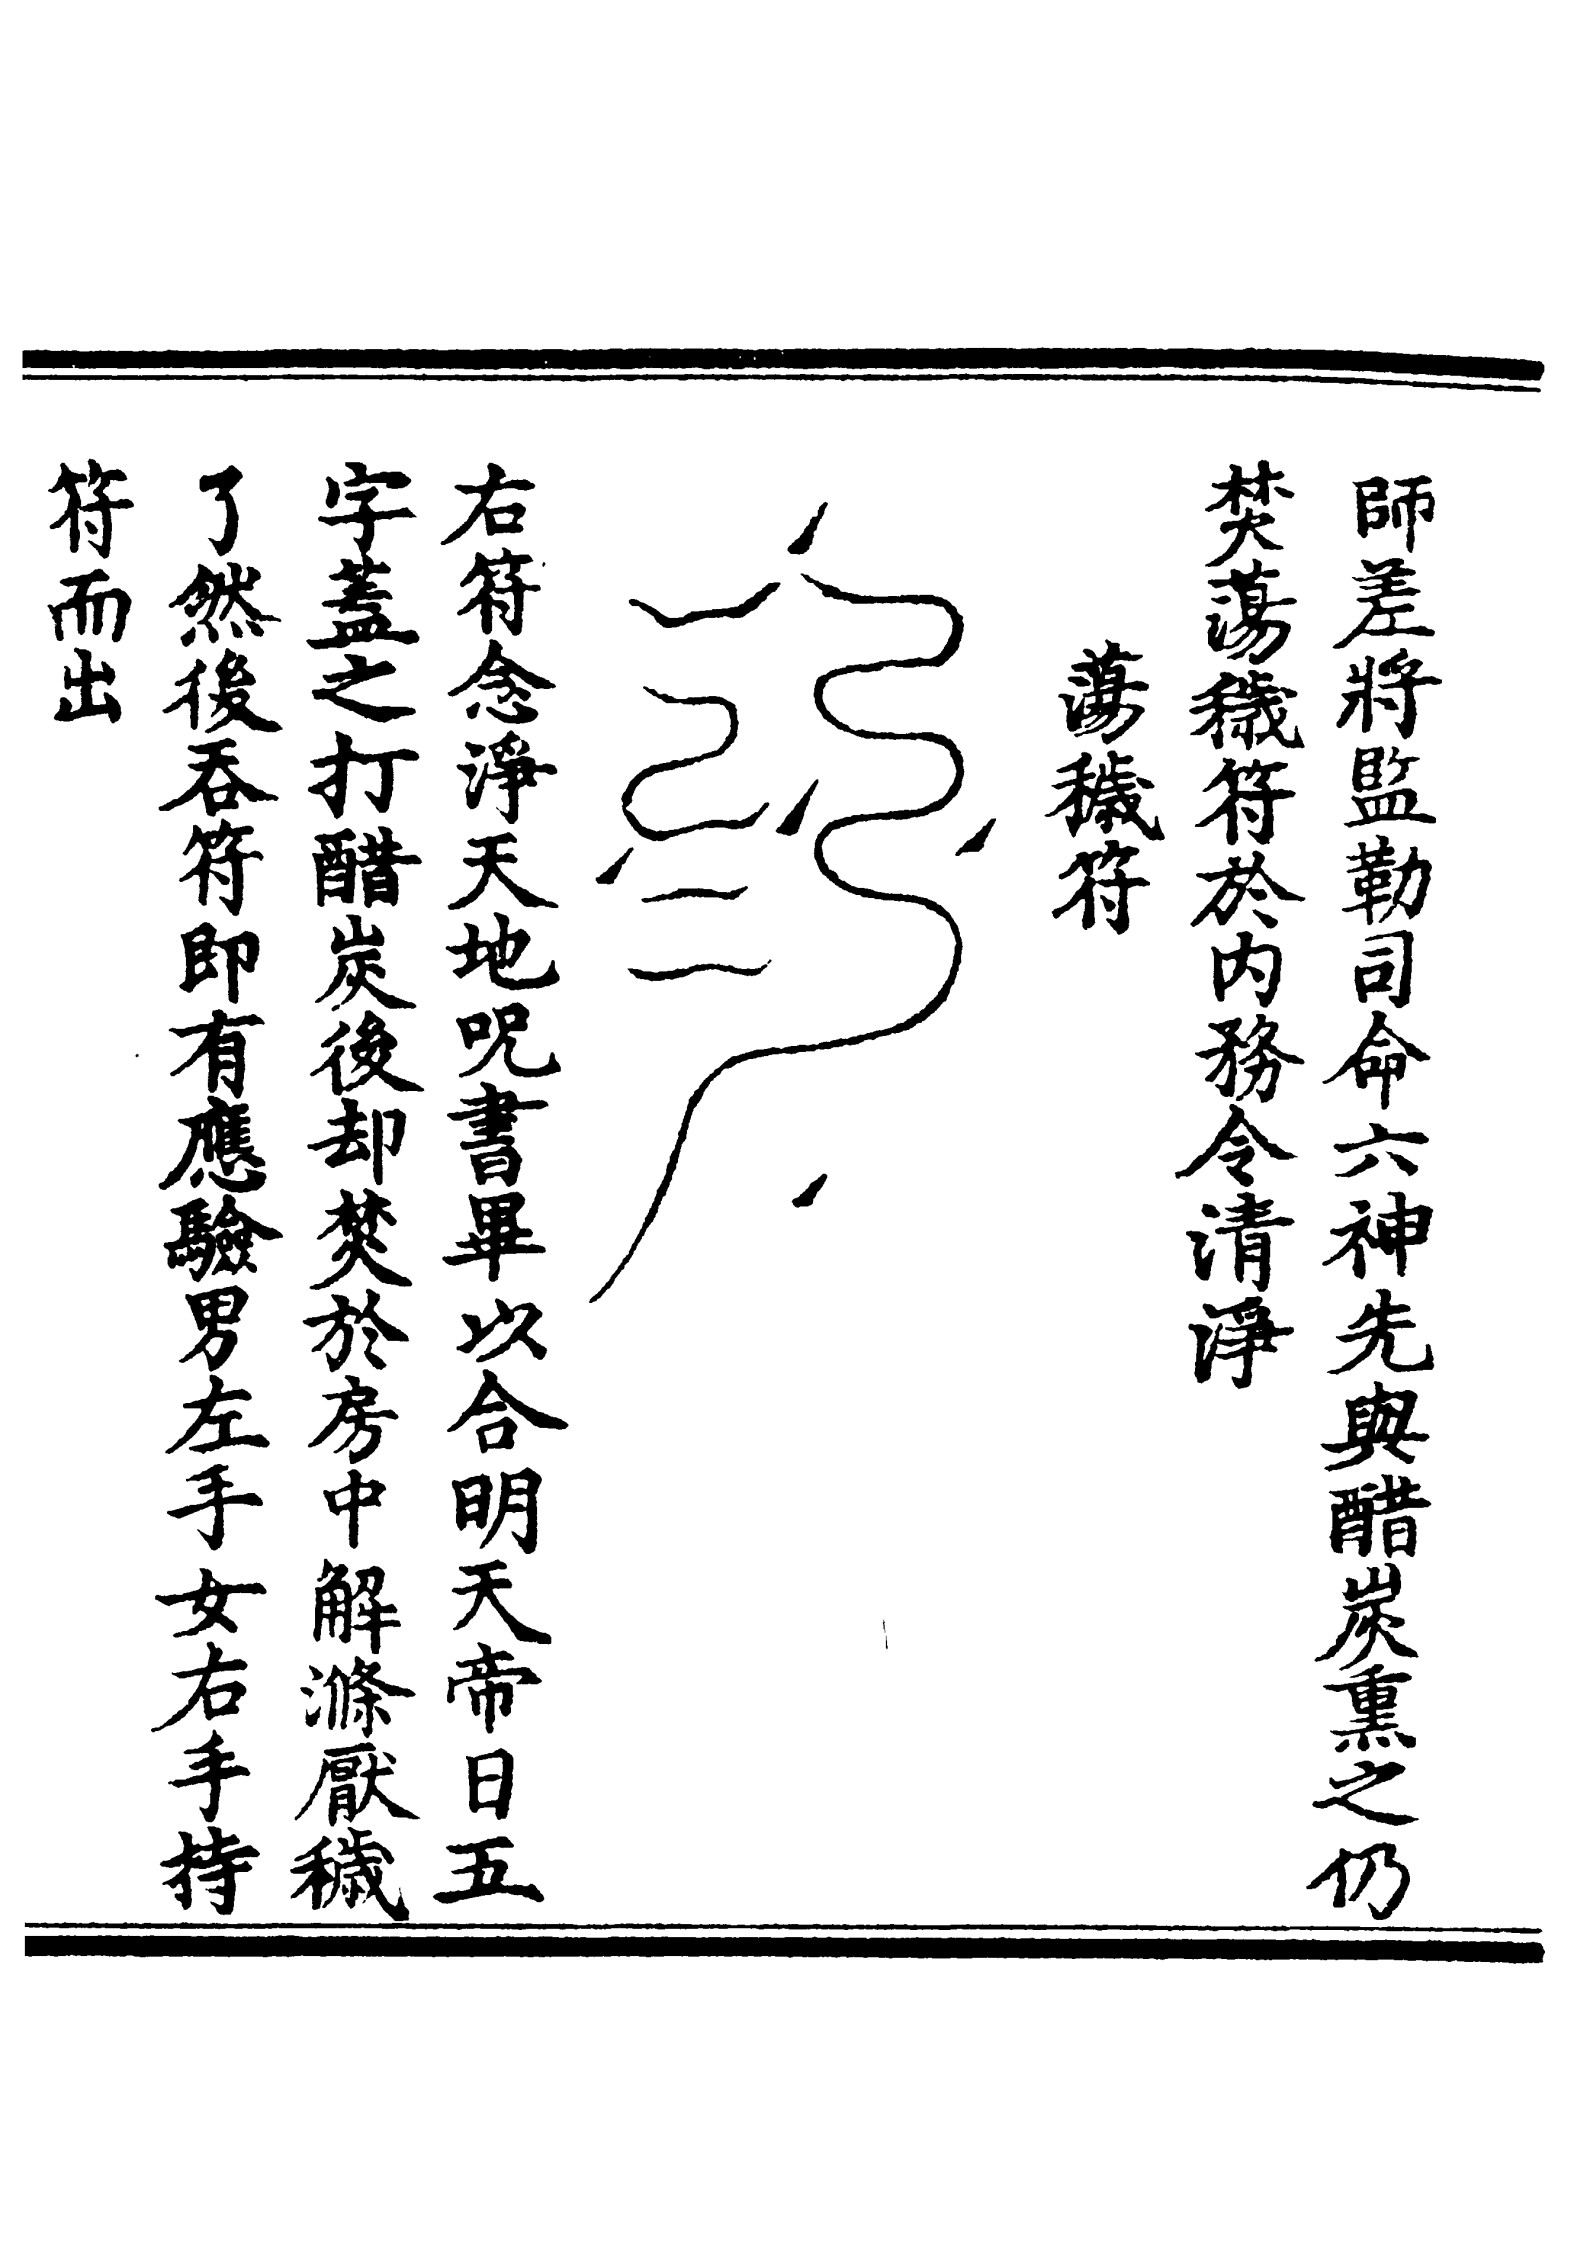 師差將監勒司命六神先與醋炭熏之仍
焚蕩穢符於内務令清淨
蕩穢符
右符念淨天地呪書畢以合明天帝日五
字蓋之打醋炭後却焚於房中解滌厭穢
了然後吞符即有應驗男左手女右手持
符而出